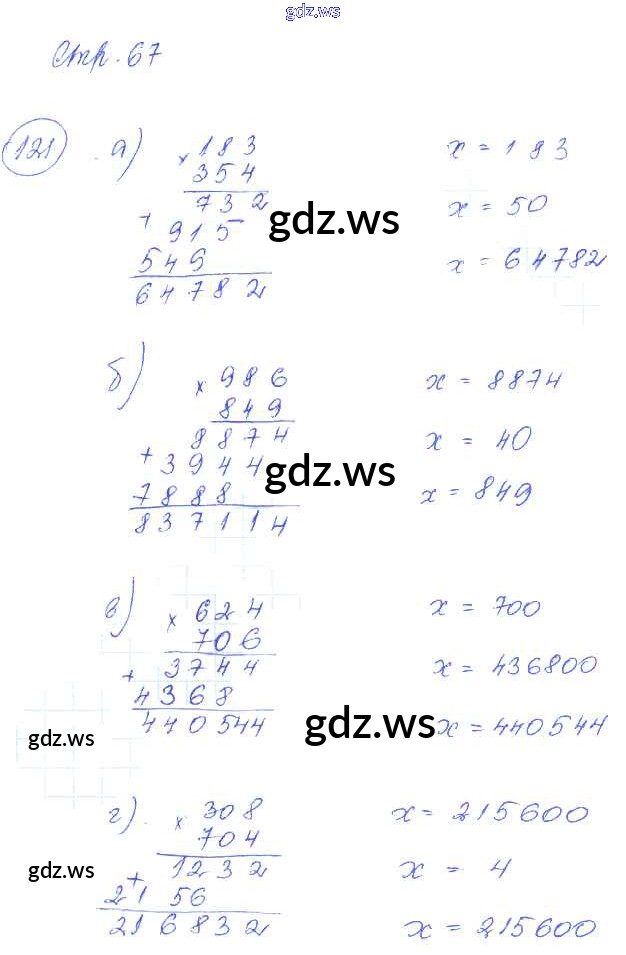 gdz.ws
Стр. 67
121 а) × 183 x = 183
354
732 x = 50
+ 915 gdz.ws
549 x = 64782
64782
б) × 986 x = 8874
849
8874 x = 40
+ 3944 gdz.ws
7888 x = 849
837114
в) × 624 x = 700
706
+ 3744 x = 436800
4368
440544 gdz.ws x = 440544
gdz.ws
г) × 308 x = 215600
704
gdz.ws + 1232 x = 4
2156
216832 x = 215600